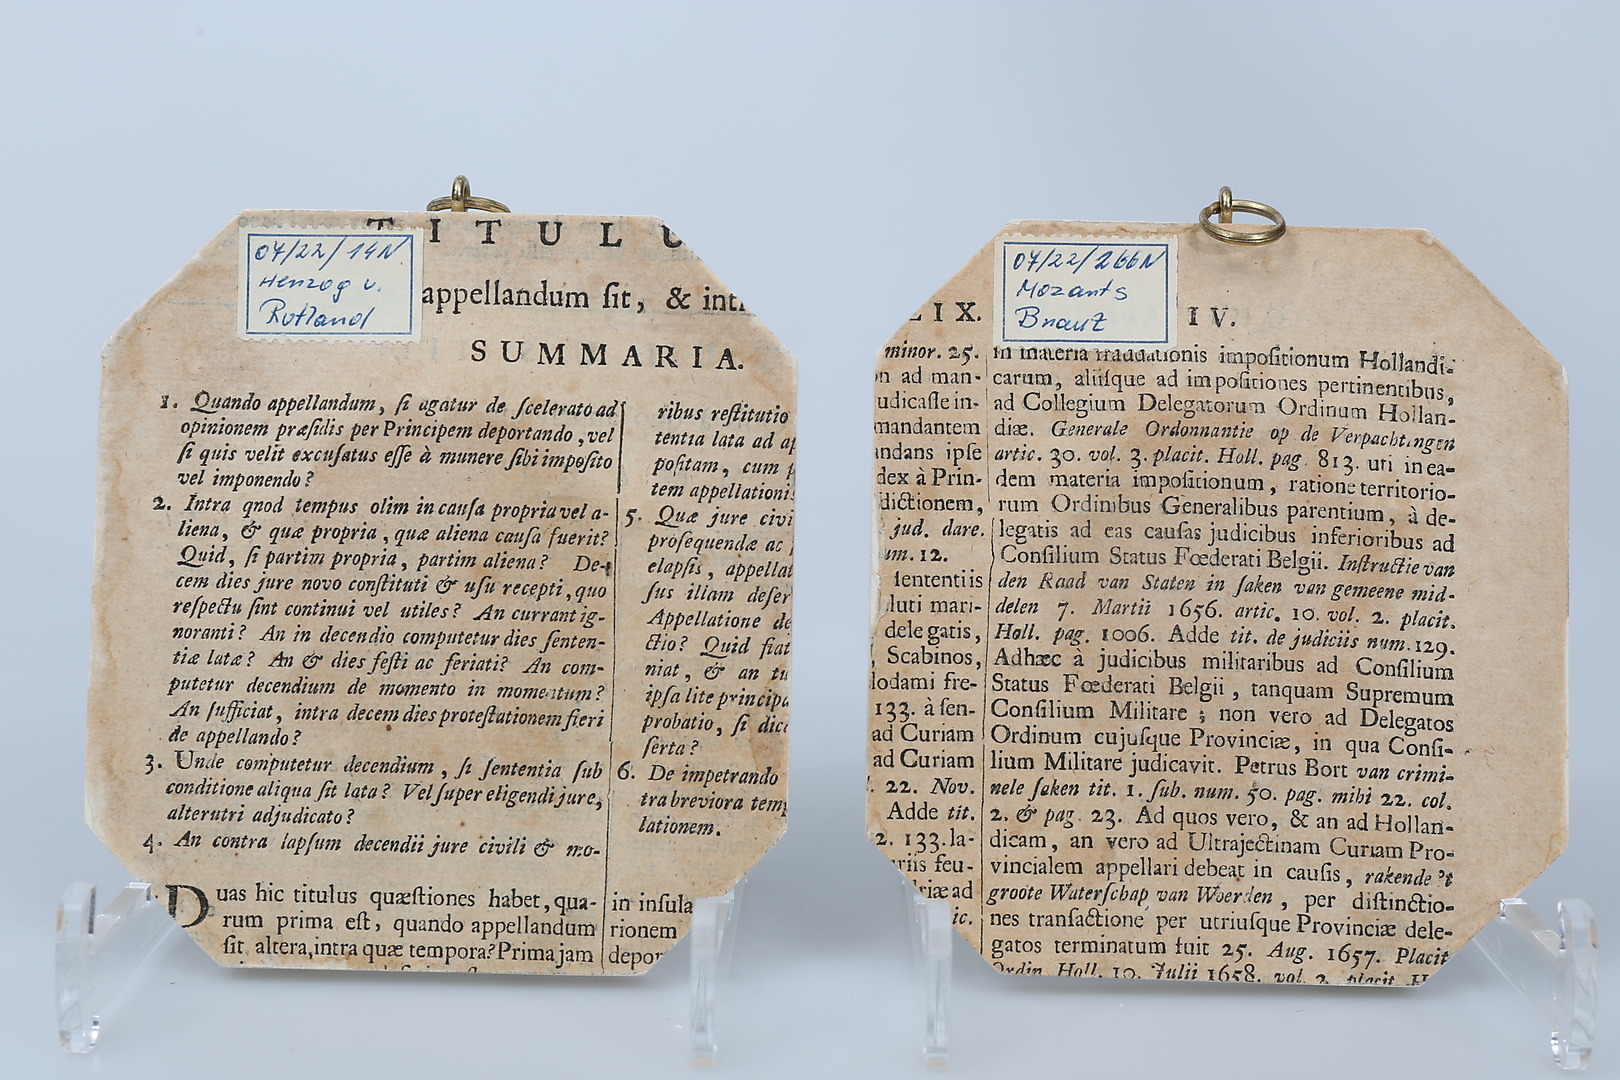 TITULU
07/22/14N
Herzog v.
Rutland
appellandum ſit, &
SUMMARIA.
1. Quando appellandum, ſi agatur de ſcelerato ad
opinionem præſidis per Principem deportando, vel
ſi quis velit excuſatus eſſe à munere ſibi impoſito
vel imponendo?
2. Intra qnod tempus olim in cauſa propria vel a-
liena, & quæ propria, quæ aliena cauſa fuerit?
Quid, ſi partim propria, partim aliena? De-
cem dies jure novo conſtituti & uſu recepti, quo
reſpectu ſint continui vel utiles? An currant ig-
noranti? An in decendio computetur dies ſenten-
tiæ latæ? An & dies feſti ac feriati? An com-
putetur decendium de momento in momentum?
An ſufficiat, intra decem dies proteſtationem fieri
de appellando?
3. Unde computetur decendium, ſi ſententia ſub
conditione aliqua ſit lata? Vel ſuper eligendi jure,
alterutri adjudicato?
4. An contra lapſum decendii jure civili & mo-
ribus reſtitutio
tentia lata ad
poſitam, cum
tem appellationi
5. Quæ jure civi
proſequendæ ac
elapſis, appellat
ſus illam deſer
Appellatione de
ctio? Quid fiat
niat, & an tu
ipſa lite principa
probatio, ſi dic
ſerta?
6. De impetrando
tra breviora tem
lationem.
1. Duas hic titulus quæſtiones habet, qua-
rum prima eſt, quando appellandum
ſit, altera, intra quæ tempora? Prima jam
in inſula
rionem
depor
LIX.
07/22/266N
Mozarts
Braut
IV.
minor. 25.
n ad man-
udicaſſe in-
mandantem
andans ipſe
dex à Prin-
dictionem,
jud. dare.
um. 12.
ſententiis
luti mari-
delegatis,
Scabinos,
lodami fre-
133. à ſen-
ad Curiam
ad Curiam
. 22. Nov.
Adde tit.
2. 133. la-
riis feu-
riæ ad
ic.
in materia fraudationis impoſitionum Hollandi-
carum, aliiſque ad impoſitiones pertinentibus,
ad Collegium Delegatorum Ordinum Hollan-
diæ. Generale Ordonnantie op de Verpachtingen
artic. 30. vol. 3. placit. Holl. pag. 813. uti in ea-
dem materia impoſitionum, ratione territorio-
rum Ordinibus Generalibus parentium, à de-
legatis ad eas cauſas judicibus inferioribus ad
Conſilium Status Fœderati Belgii. Inſtructie van
den Raad van Staten in ſaken van gemeene mid-
delen 7. Martii 1656. artic. 10. vol. 2. placit.
Holl. pag. 1006. Adde tit. de judiciis num. 129.
Adhæc à judicibus militaribus ad Conſilium
Status Fœderati Belgii, tanquam Supremum
Conſilium Militare; non vero ad Delegatos
Ordinum cujuſque Provinciæ, in qua Conſi-
lium Militare judicavit. Petrus Bort van crimi-
nele ſaken tit. 1. ſub. num. 50. pag. mihi 22. col.
2. & pag. 23. Ad quos vero, & an ad Hollan-
dicam, an vero ad Ultrajectinam Curiam Pro-
vincialem appellari debeat in cauſis, rakende 't
groote Waterſchap van Woerden, per diſtinctio-
nes tranſactione per utriuſque Provinciæ dele-
gatos terminatum fuit 25. Aug. 1657. Placit
Ordin. Holl. 10. Julii 1658. vol. 2. placit. H